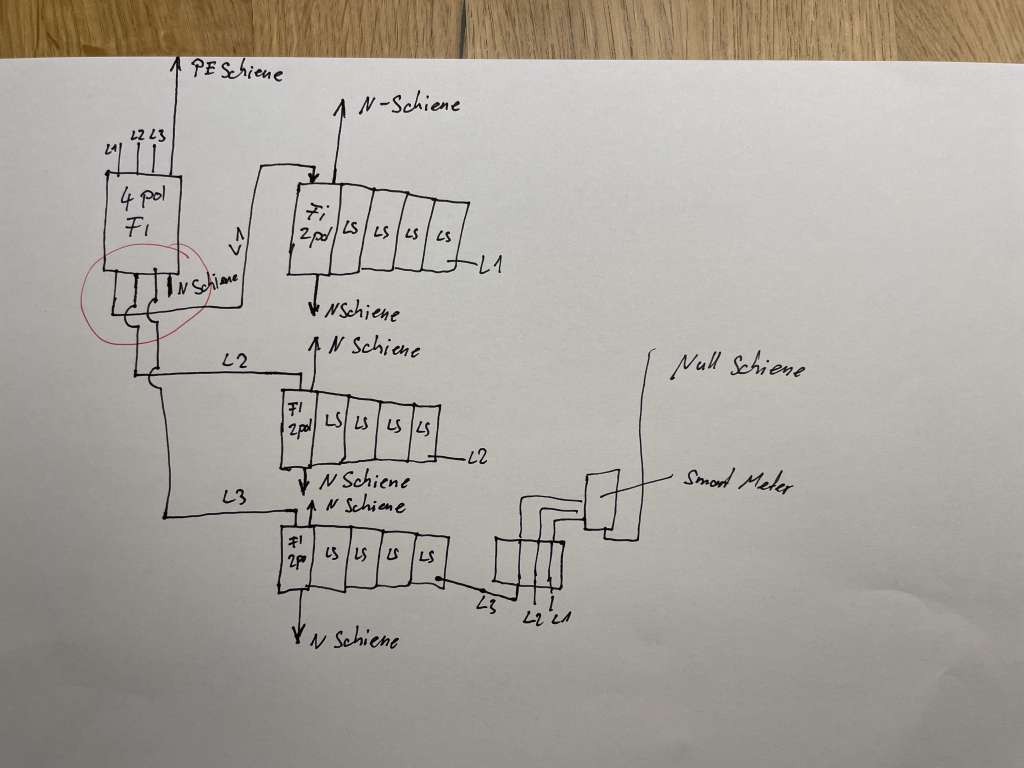 PE Schiene
N-Schiene
L1 L2 L3
4 pol
Fi
Fi
2pol
LS LS LS LS
L1
N Schiene
N Schiene
N Schiene
L2
Fi
2pol
LS LS LS LS
L2
Null Schiene
Smart Meter
N Schiene
N Schiene
L3
Fi
2po
LS LS LS LS
L3
L2 L1
N Schiene